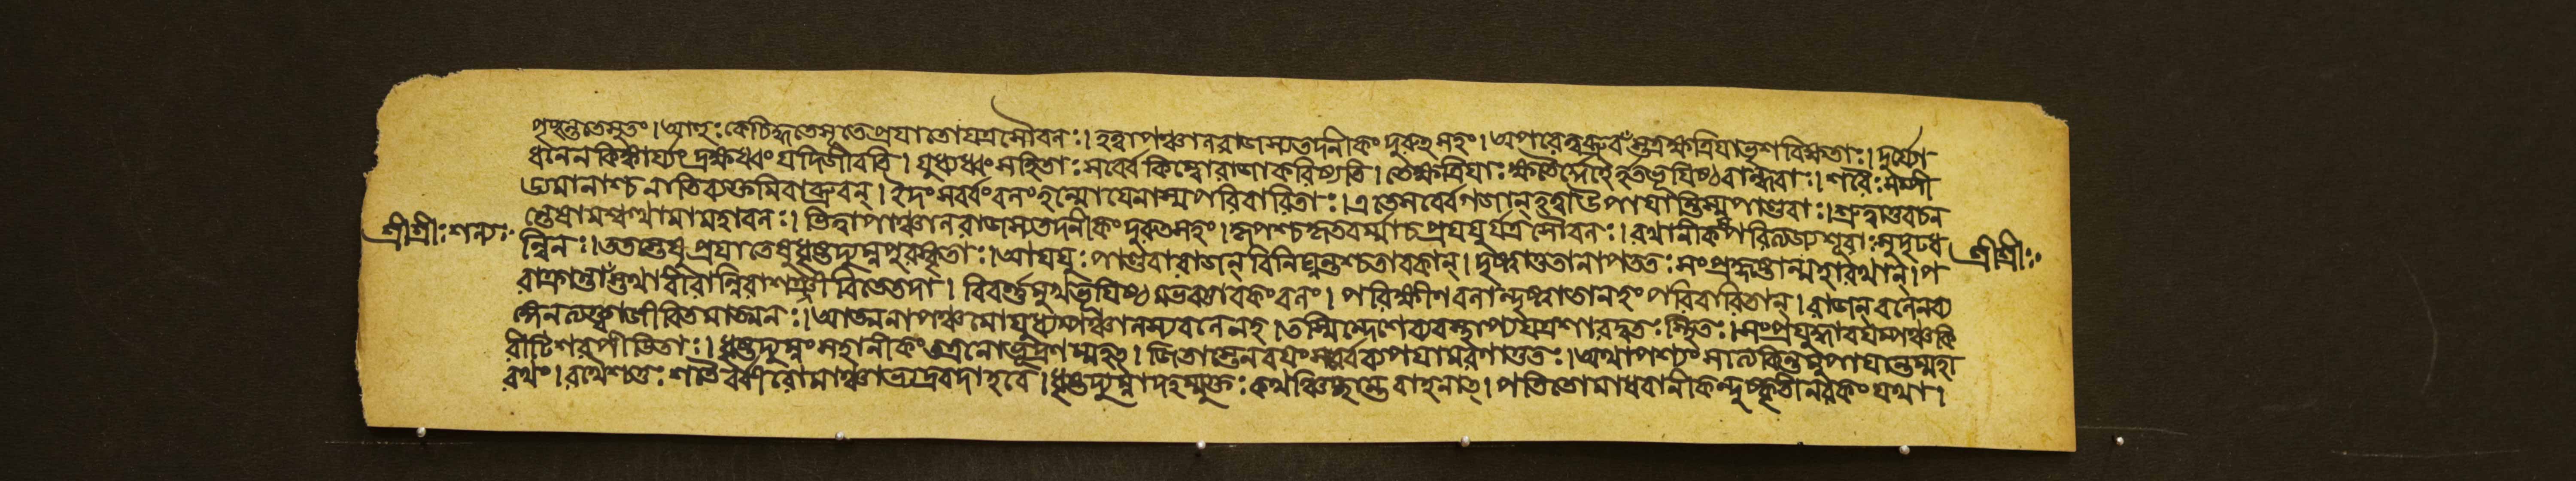 পৃচ্ছন্ততেসুতং। আহুঃ কেচিদ্ধতেসূতে প্রযাতোযত্রসৌবলঃ। হিত্বাপঞ্চালরাজস্যতদনীকং দুরুৎসহং। অপরেত্বব্রুবঁস্তত্রক্ষত্রিযাভৃশবিক্ষতাঃ। দুর্য্যো
ধনেনকিঙ্কার্য্যং দ্রক্ষধ্বং যদিজীবতি। যুধ্যধ্বং সহিতাঃ সর্ব্বেকিম্বোরাজাকরিষ্যতি। তেক্ষত্রিযাঃ ক্ষতৈর্দেহৈর্হতভূযিষ্ঠবান্ধবাঃ। শরৈঃ সম্পী
ড্যমানাশ্চ নাতিব্যক্তমিবাব্রুবন্। ইদং সর্ব্বং বলং হন্মোযেনাস্মপরিবারিতাঃ। এতেসর্ব্বেগজান্হত্বাউপাযান্তিস্মপাণ্ডবাঃ। শ্রুত্বাতুবচন
ন্তেষামশ্বত্থামামহাবলঃ। ভিত্ত্বাপাঞ্চালরাজস্যতদনীকং দুরুৎসহং। কৃপশ্চকৃতবর্ম্মাচপ্রযযুর্যত্রসৌবলঃ। রথানীকংপরিত্যজ্যশূরাঃ সুদৃঢধ
শ্রীশ্রীঃ শল্যঃ
ন্বিনঃ। ততস্তেষুপ্রযাতেষুধৃষ্টদ্যুম্নপুরস্কৃতাঃ। আযযুঃ পাণ্ডবারাজন্ বিনিঘ্নন্তশ্চতাবকান্। দৃষ্ট্বাতুতানাপততঃ সংপ্রহৃষ্টান্মহারথান্। প
শ্রীশ্রীঃ
রাক্রান্তাঁস্তথাবীরান্নিরাশাজীবিতেতদা। বিবর্ণমুখভূযিষ্ঠমভবত্তাবকং বলং। পরিক্ষীণবলান্দৃষ্ট্বাতানহং পরিবারিতান্। রাজন্ বলেনদ্ব্য
ঙ্গেনত্যক্ত্বাজীবিতমাত্মনঃ। আত্মনাপঞ্চমোযুধ্যম্পাঞ্চালস্যবলেনহ। তস্মিন্দেশেব্যবস্থাপ্যযত্রশারদ্বতঃ স্থিতঃ। সংপ্রযুদ্ধাবযম্পঞ্চকি
রীটিশরপীডিতাঃ। ধৃষ্টদ্যুম্নং মহানীকং তত্রনোভূদ্রণম্মহৎ। জিতাস্তেনবযং সর্ব্বেব্যপযামরণাত্ততঃ। অথাপশ্যং সাত্যকিন্তমুপাযান্তম্মহা
রথং। রথৈশ্চতুঃ শতৈর্বীরোমাঞ্চাভ্যদ্রবদাহবে। ধৃষ্টদ্যুম্নাদহম্মুক্তঃ কথঞ্চিচ্ছ্রান্তবাহনাৎ। পতিতোমাধবানীকন্দুষ্কৃতীনরকং যথা।